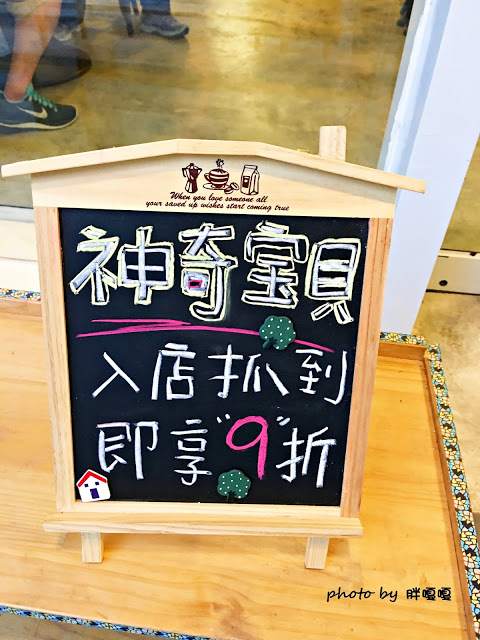 When you love someone all
your saved up wishes start coming true
神奇宝貝
入店抓到
即享"9"折
photo by 胖嘎嘎